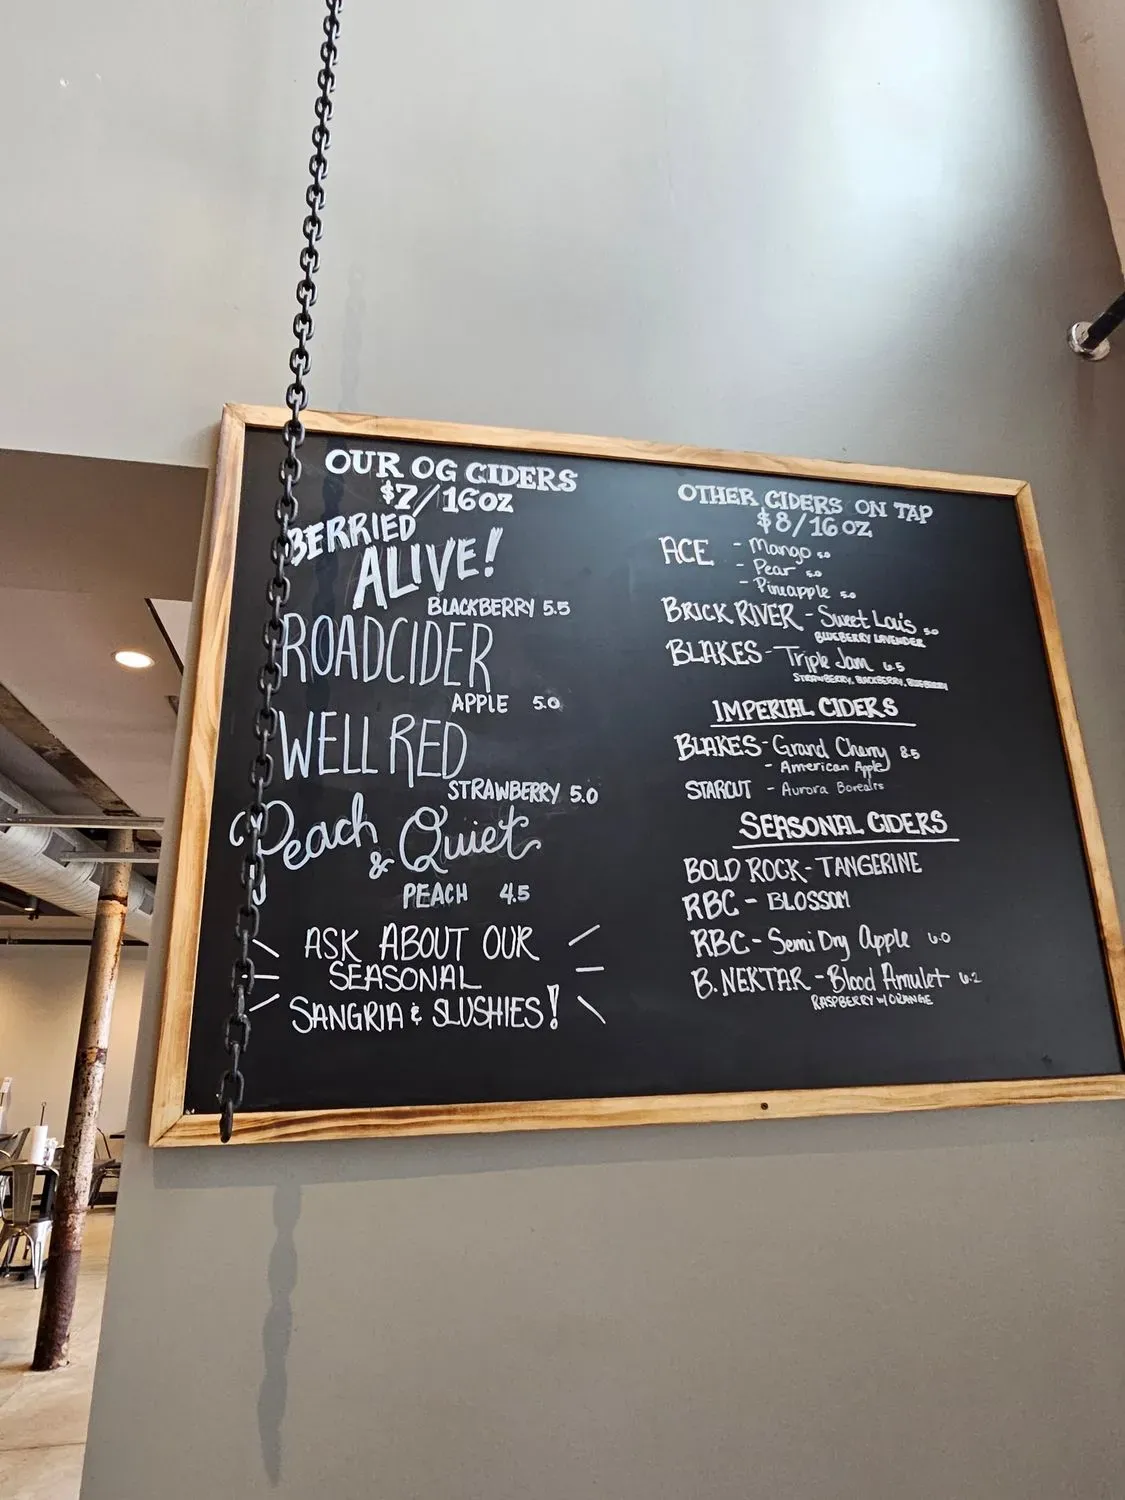 OUR OG CIDERS
$7/16oz
BERRIED
ALIVE!
BLACKBERRY 5.5
ROADCIDER
APPLE 5.0
WELL RED
STRAWBERRY 5.0
Peach
& Quiet
PEACH 4.5
ASK ABOUT OUR
SEASONAL
SANGRIA & SLUSHIES!
OTHER CIDERS ON TAP
$8/16 OZ
ACE - Mango 5.0
- Pear 5.0
- Pineapple 5.0
BRICK RIVER - Sweet Lou's 5.0
BLUEBERRY LAVENDER
BLAKES - Triple Jam 6.5
STRAWBERRY, BLACKBERRY, BLUEBERRY
IMPERIAL CIDERS
BLAKES - Grand Cherry 8.5
- American Apple
STARCUT - Aurora Borealis
SEASONAL CIDERS
BOLD ROCK - TANGERINE
RBC - BLOSSOM
RBC - Semi Dry Apple 6.0
B. NEKTAR - Blood Amulet 6.2
RASPBERRY w/ ORANGE